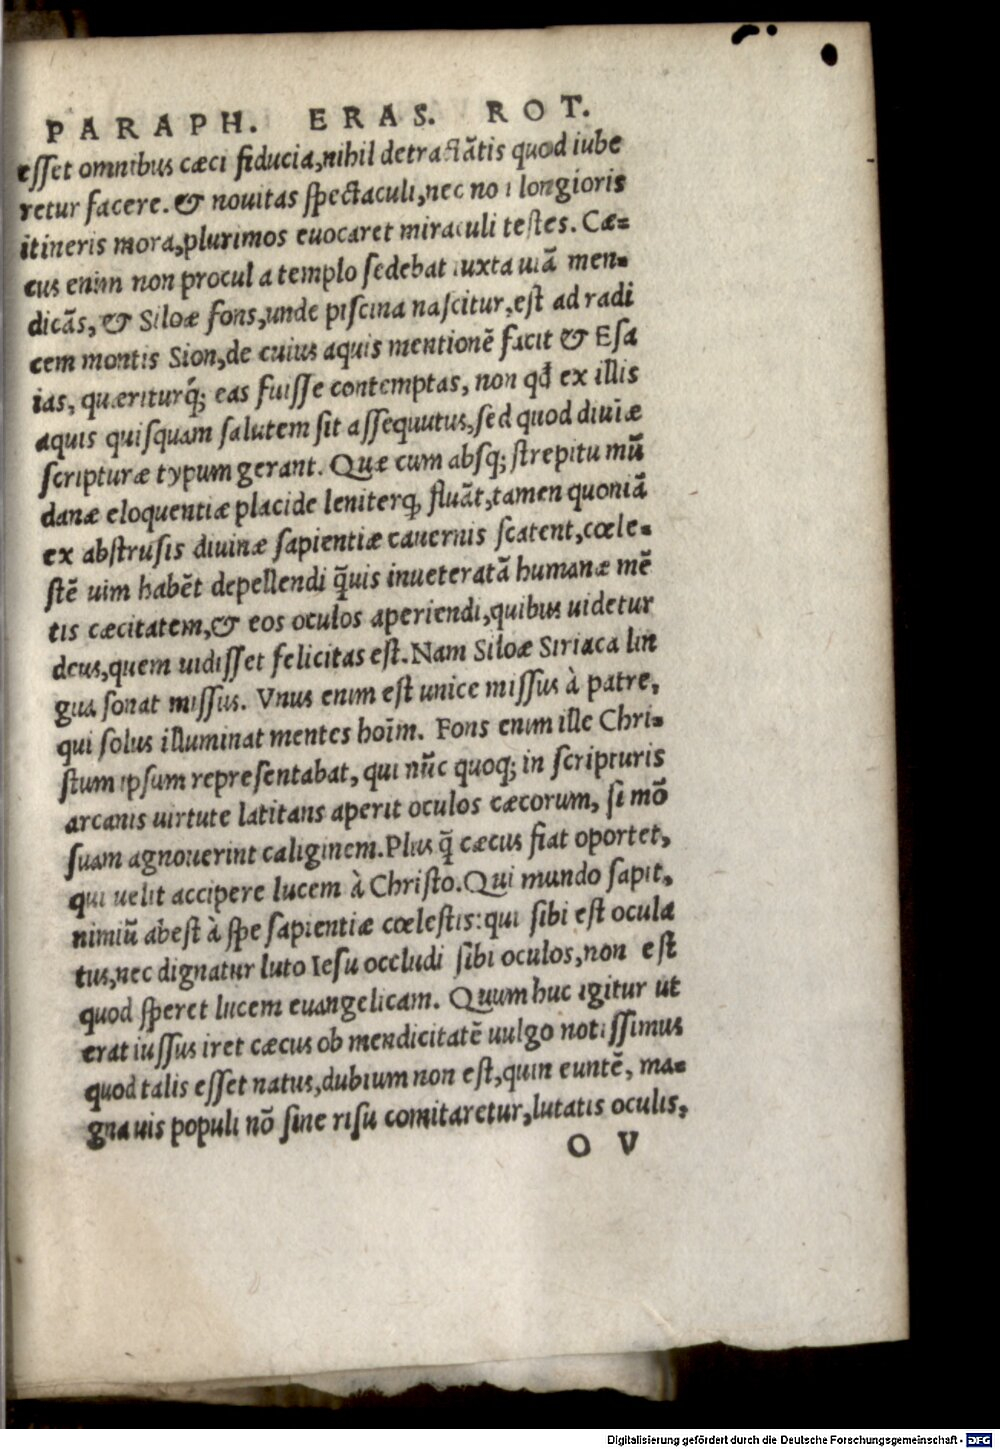 PARAPH. ERAS. ROT.
esset omnibus cæci fiducia, nihil detractātis quod iube
retur facere. & nouitas spectaculi, nec non longioris
itineris mora, plurimos euocaret miraculi testes. Cæ-
cus enim non procul a templo sedebat iuxta uiā men-
dicās, & Siloæ fons, unde piscina nascitur, est ad radi
cem montis Sion, de cuius aquis mentionē facit & Esa
ias, quæriturq́; eas fuisse contemptas, non qđ ex illis
aquis quisquam salutem sit assequutus, sed quod diuiæ
scripturæ typum gerant. Quæ cum absq; strepitu mū
danæ eloquentiæ placide leniterq, fluāt, tamen quoniā
ex abstrusis diuinæ sapientiæ cauernis scatent, cœle-
stē uim habēt depellendi q̄uis inueteratā humanæ mē
tis cæcitatem, & eos oculos aperiendi, quibus uidetur
deus, quem uidisset felicitas est. Nam Siloæ Siriaca lin
gua sonat missus. Vnus enim est unice missus à patre,
qui solus illuminat mentes hoīm. Fons enim ille Chri-
stum ipsum representabat, qui nūc quoq; in scripturis
arcanis uirtute latitans aperit oculos cæcorum, si mō
suam agnouerint caliginem. Plus q̄ cæcus fiat oportet,
qui uelit accipere lucem à Christo. Qui mundo sapit,
nimiū abest à spe sapientiæ cœlestis: qui sibi est ocula
tus, nec dignatur luto Iesu occludi sibi oculos, non est
quod speret lucem euangelicam. Quum huc igitur ut
erat iussus iret cæcus ob mendicitatē uulgo notissimus
quod talis esset natus, dubium non est, quin euntē, ma-
gna uis populi nō sine risu comitaretur, lutatis oculis,
O V
Digitalisierung gefördert durch die Deutsche Forschungsgemeinschaft - DFG